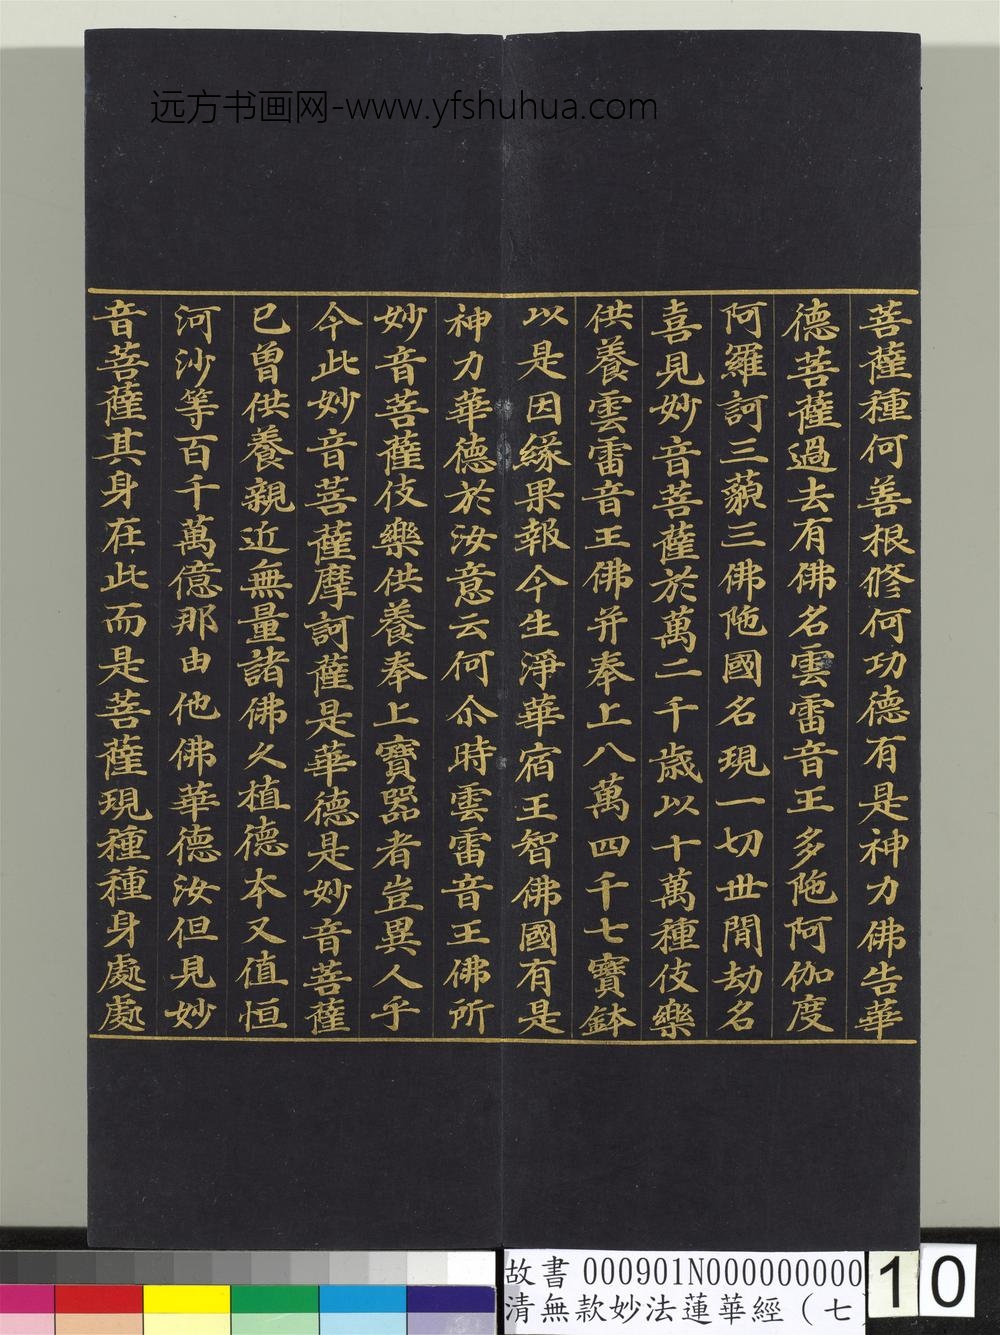 远方书画网-www.yfshuhua.com
菩薩種何善根修何功德有是神力佛告華
德菩薩過去有佛名雲雷音王多陁阿伽度
阿羅訶三藐三佛陁國名現一切世閒劫名
喜見妙音菩薩於萬二千歲以十萬種伎樂
供養雲雷音王佛并奉上八萬四千七寶鉢
以是因緣果報今生淨華宿王智佛國有是
神力華德於汝意云何尒時雲雷音王佛所
妙音菩薩伎樂供養奉上寶器者豈異人乎
今此妙音菩薩摩訶薩是華德是妙音菩薩
已曾供養親近無量諸佛久植德本又值恒
河沙等百千萬億那由他佛華德汝但見妙
音菩薩其身在此而是菩薩現種種身處處
故書 000901N000000000
清無款妙法蓮華經（七
10